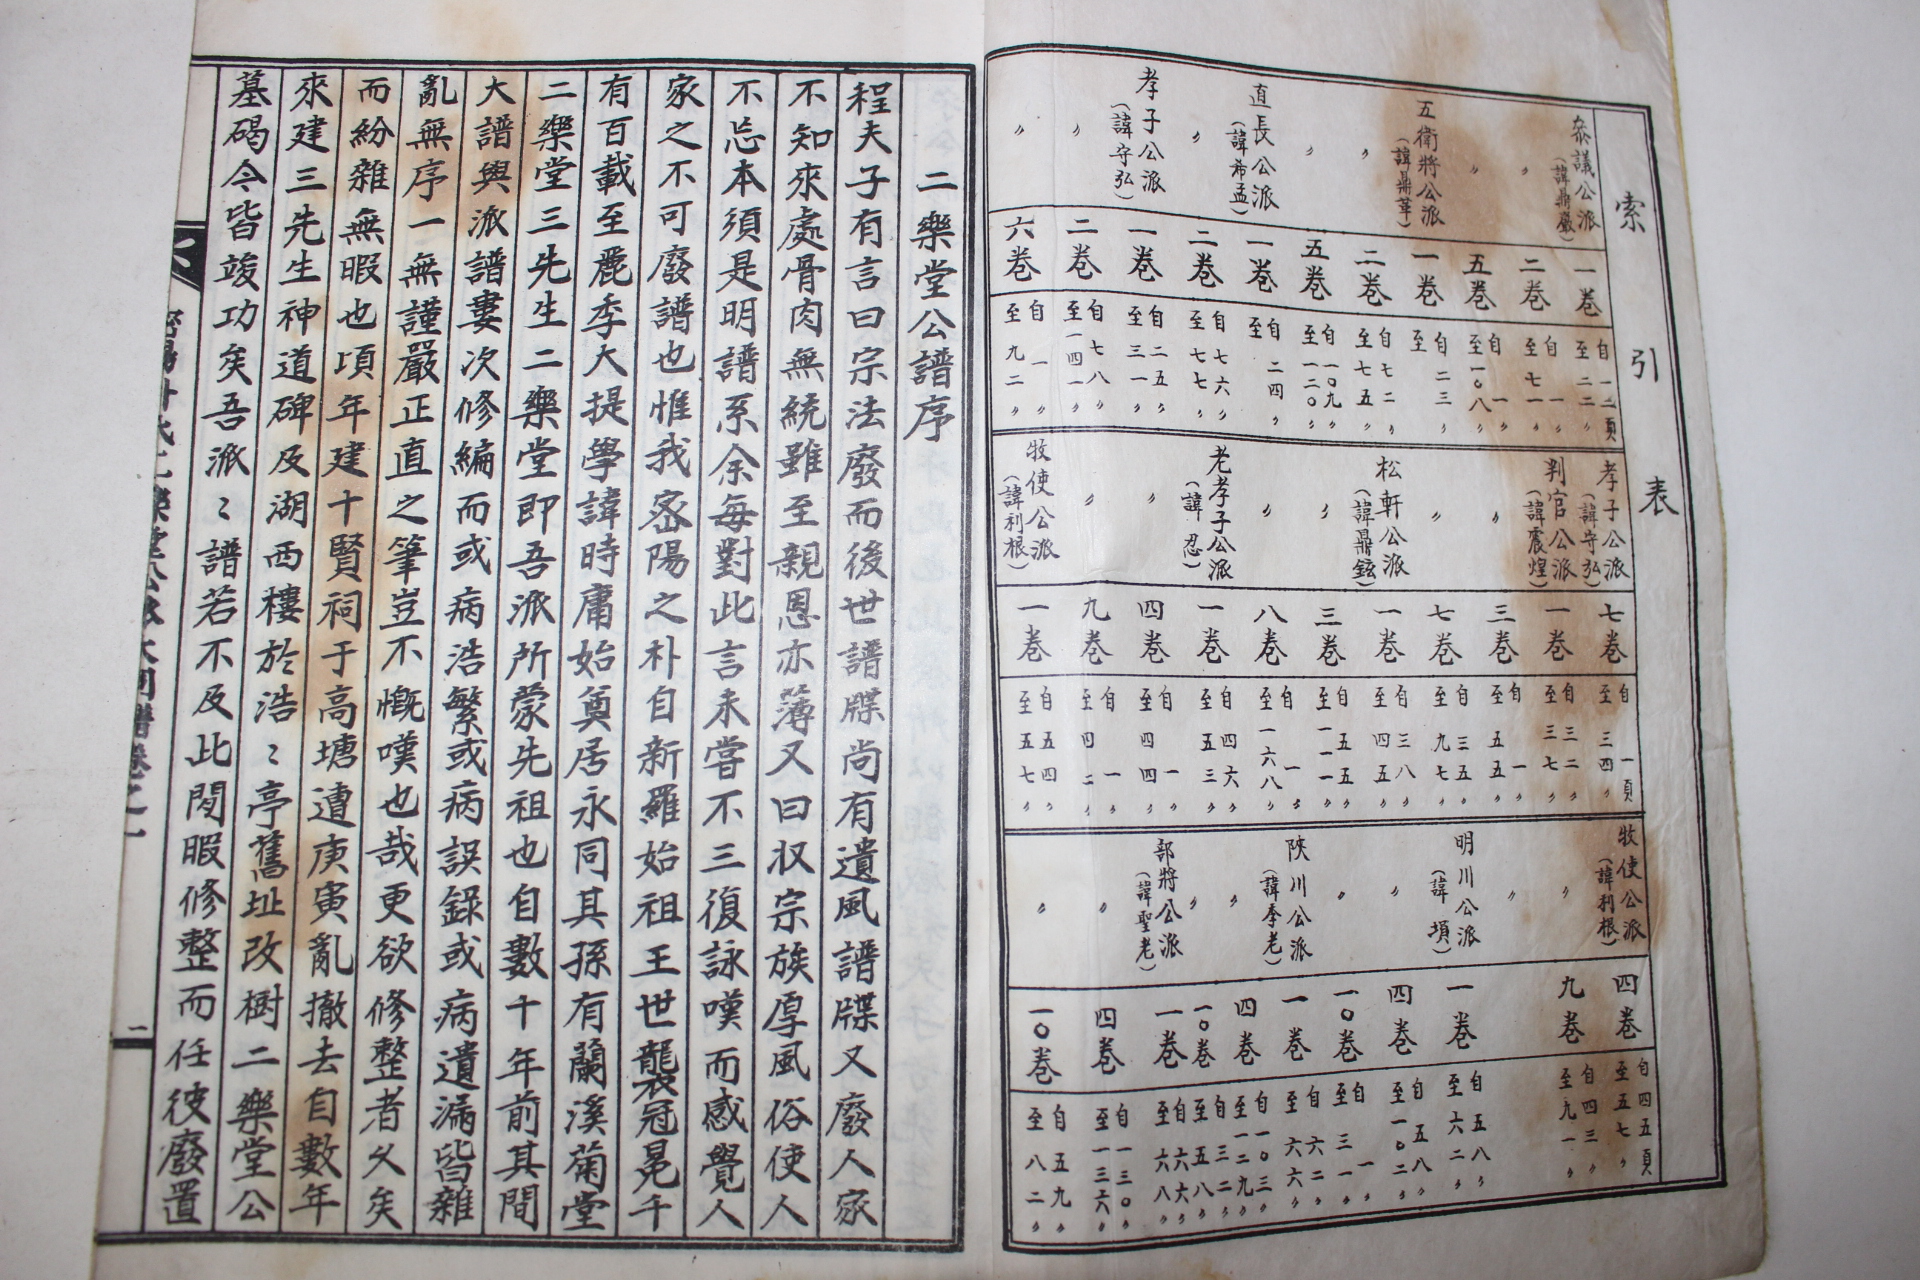 索引表
參議公派(諱鼎嚴) 一卷 自一二頁 至二二〃
〃 二卷 自一〃 至七一〃
〃 五卷 自一〃 至一〇八〃
五衛將公派(諱鼎華) 一卷 自 至 二三〃
〃 二卷 自七二〃 至七五〃
〃 五卷 自一〇九〃 至一二〇〃
直長公派(諱希孟) 一卷 自 至 二四〃
〃 二卷 自七六〃 至七七〃
孝子公派(諱守弘) 一卷 自二五〃 至三一〃
〃 二卷 自七八〃 至一四一〃
〃 六卷 自一〃 至九二〃
孝子公派(諱守弘) 七卷 自一頁 至三四〃
判官公派(諱震煌) 一卷 自三二〃 至三七〃
〃 三卷 自一〃 至五五〃
〃 七卷 自三五〃 至九七〃
松軒公派(諱鼎鉉) 一卷 自三八〃 至四五〃
〃 三卷 自五五〃 至一一一〃
〃 八卷 自一〃 至一六八〃
老孝子公派(諱忍) 一卷 自四六〃 至五三〃
〃 四卷 自一〃 至四四〃
〃 九卷 自一〃 至四二〃
牧使公派(諱利根) 一卷 自五四〃 至五七〃
牧使公派(諱利根) 四卷 自四五頁 至五七〃
〃 九卷 自四三〃 至九一〃
〃
明川公派(諱塤) 一卷 自五八〃 至六二〃
〃 四卷 自五八〃 至一〇二〃
〃 一〇卷 自一〃 至三一〃
陜川公派(諱季老) 一卷 自六二〃 至六六〃
〃 四卷 自一〇三〃 至一二九〃
〃 一〇卷 自三二〃 至五八〃
部將公派(諱聖老) 一卷 自六六〃 至六八〃
〃 四卷 自一三〇〃 至一三六〃
〃 一〇卷 自五九〃 至八二〃
二樂堂公譜序
程夫子有言曰宗法廢而後世譜牒尚有遺風譜牒又廢人家
不知來處骨肉無統雖至親恩亦薄又曰収宗族厚風俗使人
不忘本須是明譜系余每對此言未嘗不三復詠嘆而感覺人
家之不可廢譜也惟我密陽之朴自新羅始祖王世襲冠冕千
有百載至麗季大提學諱時庸始奠居永同其孫有蘭溪菊堂
二樂堂三先生二樂堂即吾派所蒙先祖也自數十年前其間
大譜與派譜婁次修編而或病浩繁或病誤錄或病遺漏皆雜
亂無序一無謹嚴正直之筆豈不慨嘆也哉更欲修整者久矣
而紛雜無暇也頃年建十賢祠于高塘遭庚寅亂撤去自數年
來建三先生神道碑及湖西樓於浩〻亭舊址改樹二樂堂公
墓碣今皆竣功矣吾派〻譜若不及此閒暇修整而任彼廢置
二